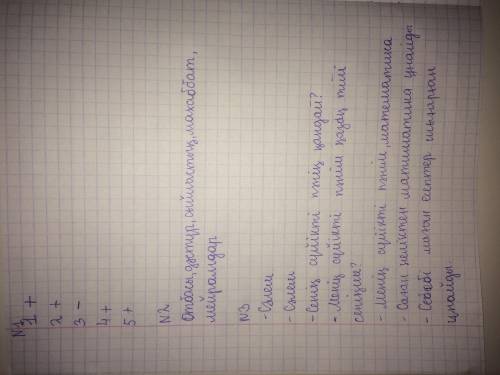 N1
1 +
2 +
3 -
4 +
5 +
N2
Отбасы, дәстүр, сыйластық, махаббат,
мейрамдар
N3
- Сәлем
- Сәлем
- Сенің сүйікті пәнің қандай?
- Менің сүйікті пәнім қазақ тілі
сенікші?
- Менің сүйікті пәнім, математика
- Саған неліктен математика ұнайды
- Себебі маған есептер шығарған
ұнайды.